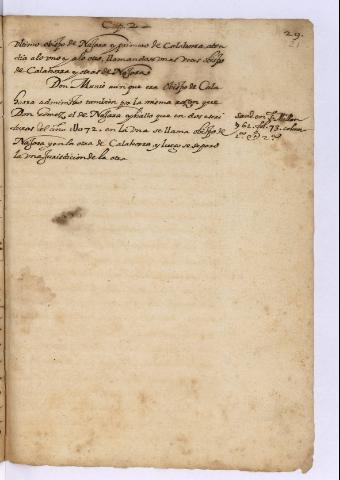 Cap. 2
29.
ultimo obispo de Najara y primero de Calahorra aten
dia a lo uno y a lo otro, llamandose unas veces obispo
de Calahorra y otras de Najara
Don Munio aunque era obispo de Cala
horra administro tambien por la misma razon que
Don Gomez el de Najara y hallo que en dos escri
turas del año 1072. en la una se llama obispo de
Najara y en la otra de Calahorra y luego se separo
la una Jurisdicion de la otra
Sand. en
fol. 73. colum